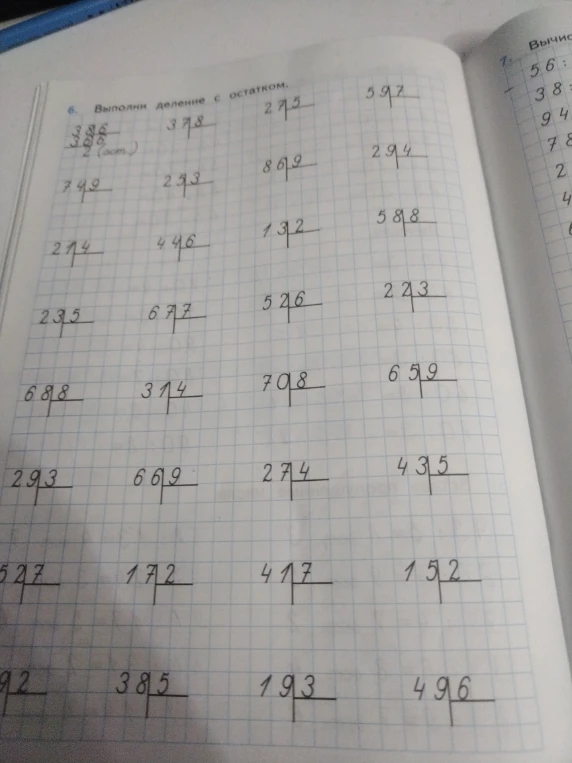 6. Выполни деление с остатком.
38|6 37|8 27|5 59|7
36|6
2 (ост.)
74|9 29|3 86|9 29|4
21|4 44|6 13|2 58|8
23|5 67|7 52|6 22|3
68|8 31|4 70|8 65|9
29|3 66|9 27|4 43|5
52|7 17|2 41|7 15|2
9|2 38|5 19|3 49|6
7. Вычис
56:
38:
94
78
2
4